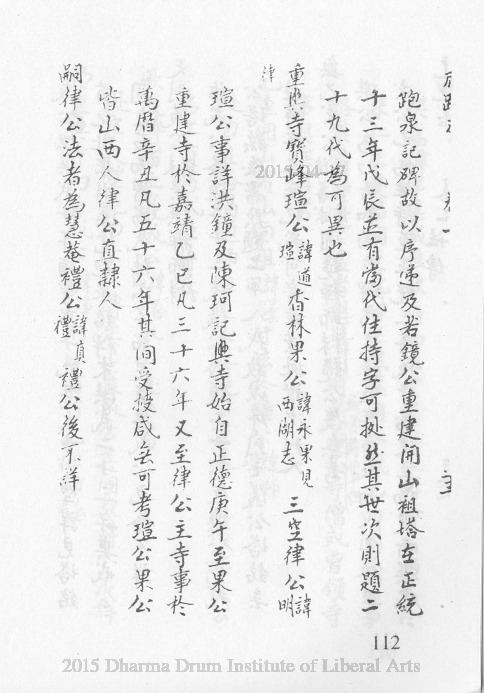 跑泉記碑故以序遞及若鏡公重建開山祖塔在正統
十三年戊辰並有當代住持字可挺然其世次則題二
十九代為可異也
重興寺寶峰瑄公諱道瑄杏林果公諱永果見西湖志三空律公諱明律
瑄公事詳洪鐘及陳珂記興寺始自正德庚午至果公
重建寺於嘉靖乙巳凡三十六年又至律公主寺事於
萬曆辛丑凡五十六年其間受授咸無可考瑄公果公
皆山西人律公直隸人
嗣律公法者為慧菴禮公諱真禮禮公後不詳
112
2015 Dharma Drum Institute of Liberal Arts